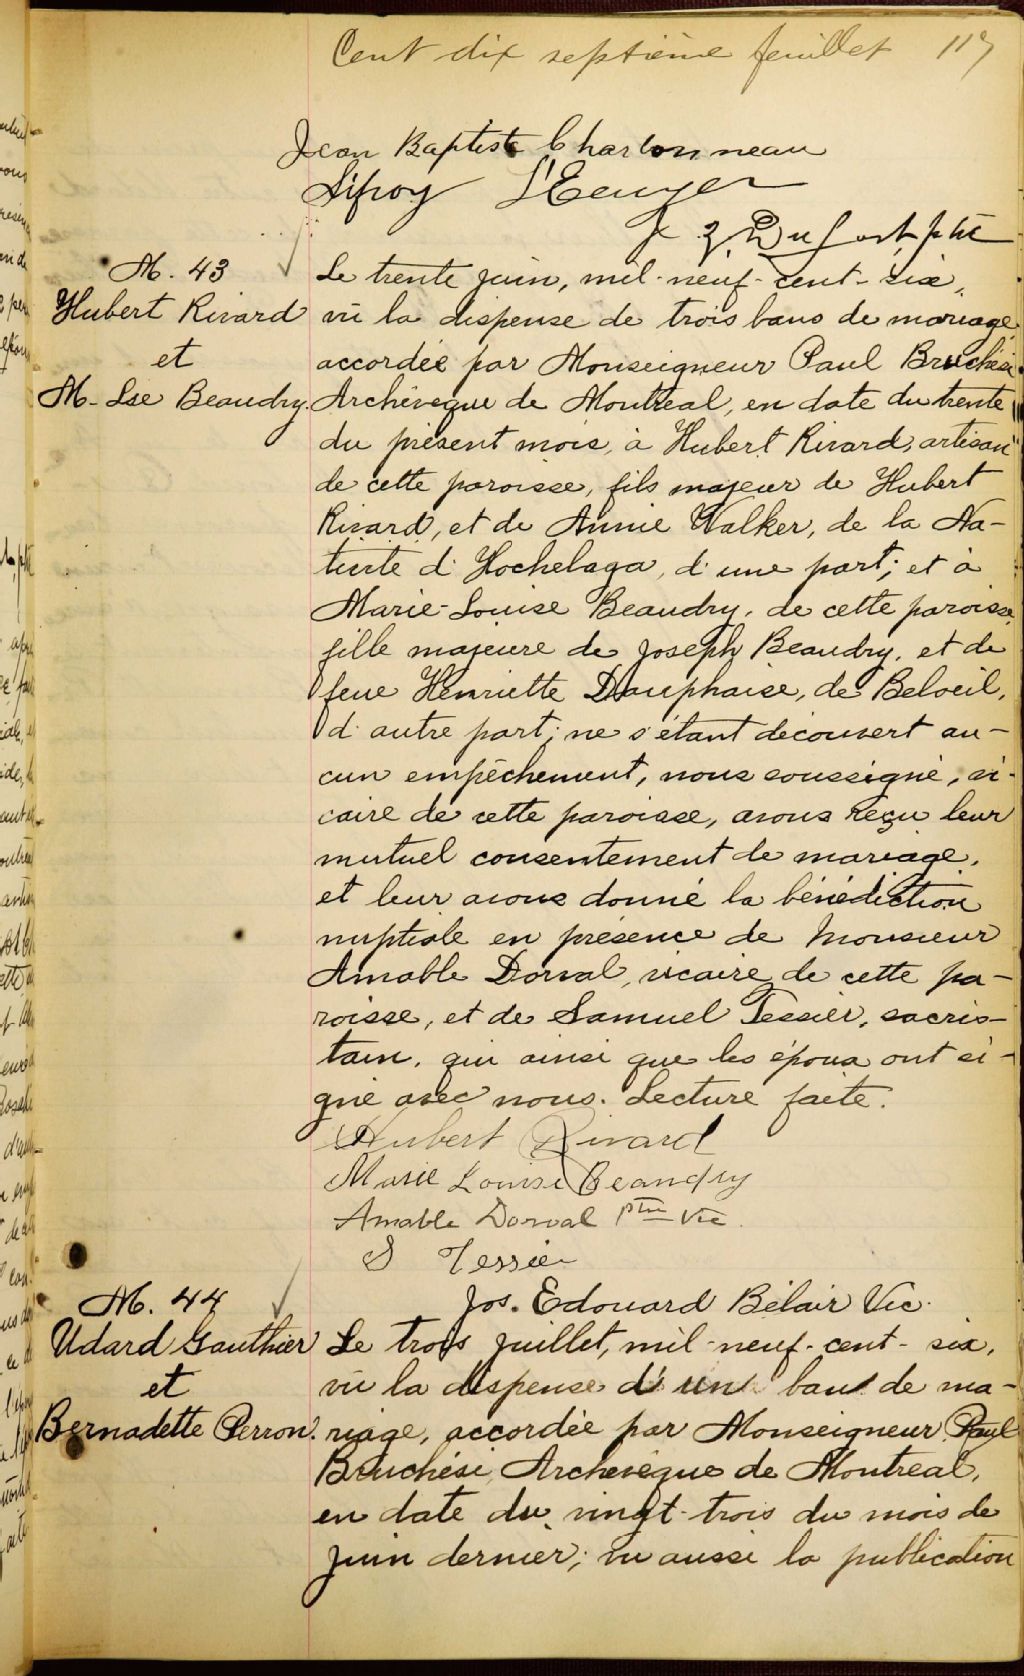 Cent dix septième feuillet 117
Jean Baptiste Charbonneau
Sifroy L'Ecuyer
J. Z. Dufort ptre
M. 43
Hubert Rivard
et
M-Lse Beaudry.
Le trente juin, mil-neuf-cent-six,
vu la dispense de trois bans de mariage
accordée par Monseigneur Paul Bruchési
Archévêque de Montréal, en date du trente
du présent mois, à Hubert Rivard, artisan
de cette paroisse, fils majeur de Hubert
Rivard, et de Annie Walker, de la Na-
tivité d'Hochelaga, d'une part; et à
Marie-Louise Beaudry, de cette paroisse,
fille majeure de Joseph Beaudry, et de
feue Henriette Dauphaise, de Beloeil,
d'autre part; ne s'étant découvert au-
cun empêchement, nous soussigné, vi-
caire de cette paroisse, avons reçu leur
mutuel consentement de mariage,
et leur avons donné la bénédiction
nuptiale en présence de Monsieur
Amable Dorval, vicaire de cette pa-
roisse, et de Samuel Tessier, sacris-
tain, qui ainsi que les époux ont si-
gné avec nous. Lecture faite.
Hubert Rivard
Marie Louise Beaudry
Amable Dorval ptre Vic.
S Tessier
Jos. Edouard Bélair Vic.
M. 44
Udard Gauthier
et
Bernadette Perron.
Le trois juillet, mil-neuf-cent-six,
vu la dispense d'un ban de ma-
riage, accordée par Monseigneur Paul
Bruchési, Archevêque de Montréal,
en date du vingt-trois du mois de
juin dernier; vu aussi la publication